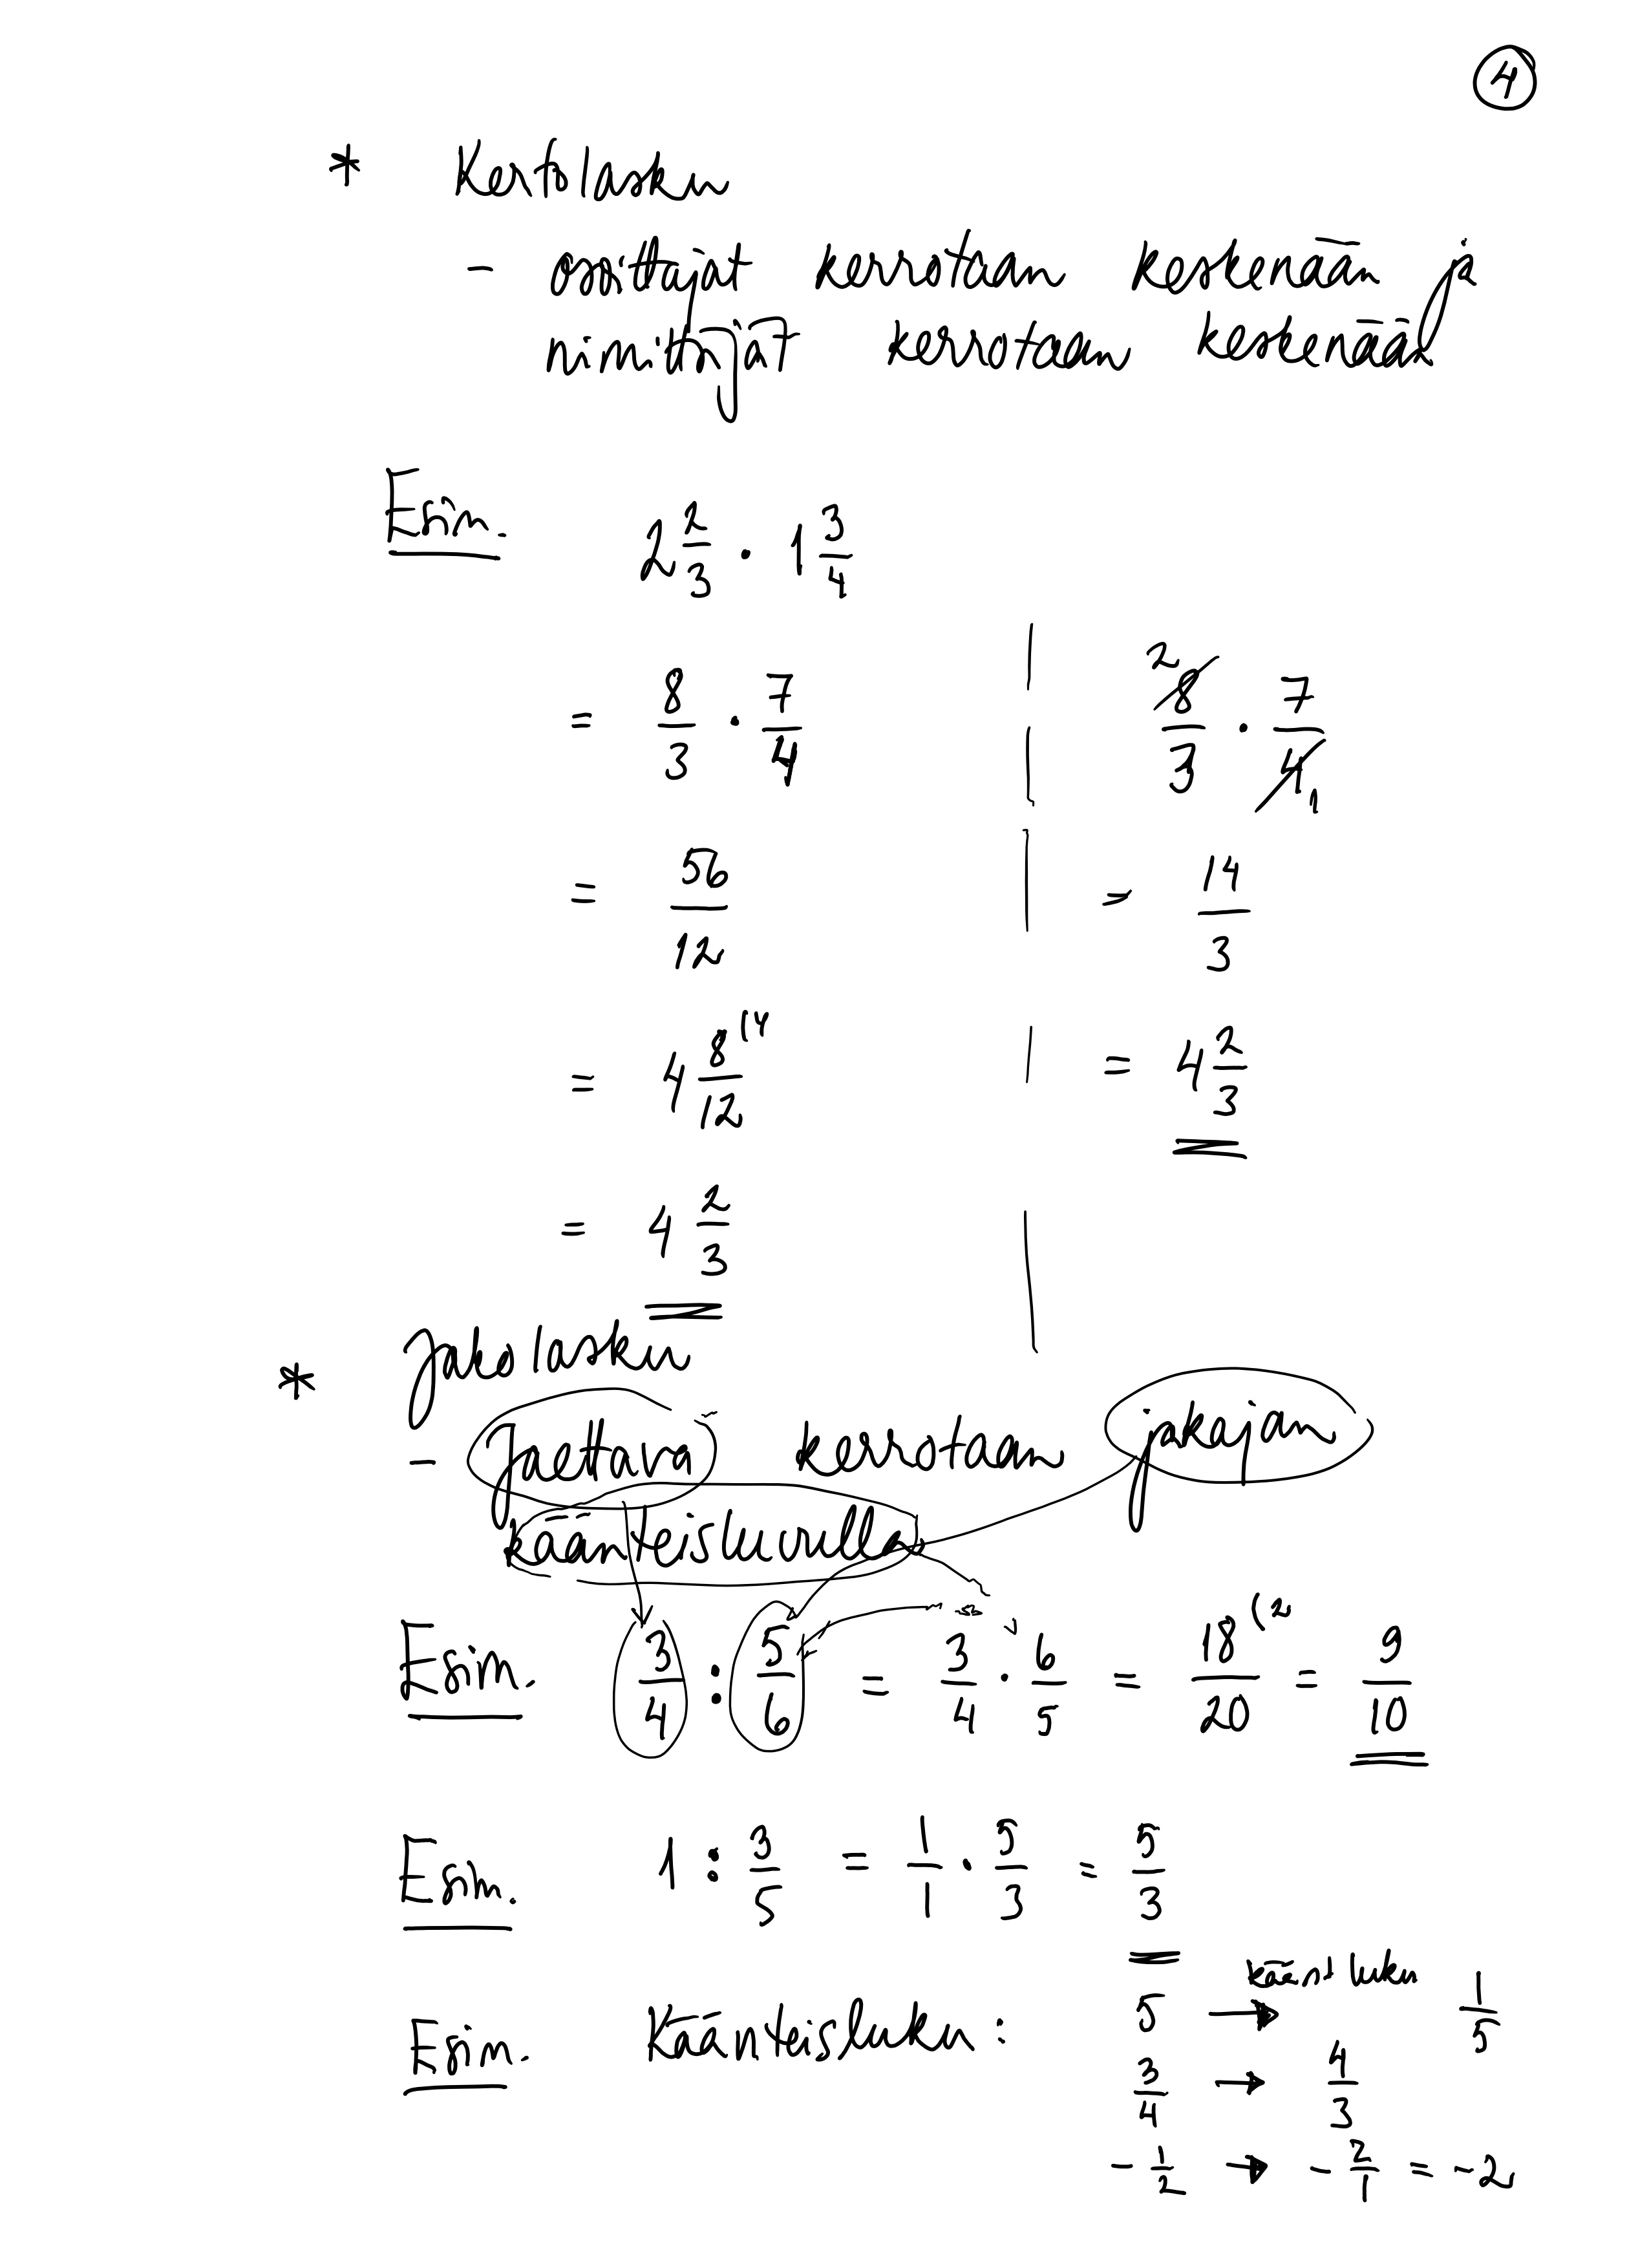 4
* Kertolasku
- osoittajat kerrotaan keskenään ja
nimittäjät kerrotaan keskenään
Esim. 2 2/3 · 1 3/4
= 8/3 · 7/4 | 2 8/3 · 7/4 1
= 56/12 | = 14/3
= 4 8/12 (4 | = 4 2/3
= 4 2/3
* Jakolasku
- Jaettava kerrotaan jakajan
käänteisluvulla
Esim. 3/4 : 5/6 = 3/4 · 6/5 = 18/20 (2 = 9/10
Esim. 1 : 3/5 = 1/1 · 5/3 = 5/3
käänt luku
Esim. Käänteisluku: 5 → 1/5
3/4 → 4/3
- 1/2 → - 2/1 = -2